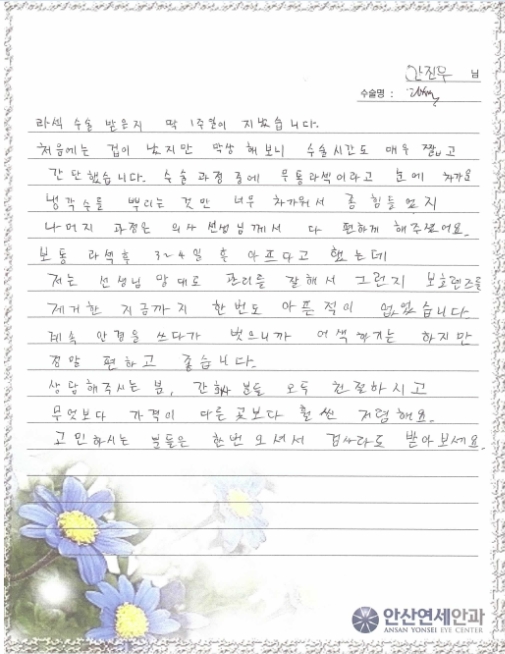 안진우 님
수술명 : 라섹
라섹 수술 받은지 딱 1주일이 지났습니다.
처음에는 겁이 났지만 막상 해보니 수술시간도 매우 짧고
간단했습니다. 수술 과정 중에 무통라섹이라고 눈에 차가운
냉각수를 뿌리는 것만 너무 차가워서 좀 힘들었지
나머지 과정은 의사 선생님께서 다 편하게 해주셨어요.
보통 라섹후 3~4일 후 아프다고 했는데
저는 선생님 말대로 관리를 잘해서 그런지 보호렌즈를
제거한 지금까지 한번도 아픈적이 없었습니다.
계속 안경을 쓰다가 벗으니까 어색하기는 하지만
정말 편하고 좋습니다.
상담해주시는 분, 간호사 분들 모두 친절하시고
무엇보다 가격이 다른곳보다 훨씬 저렴해요.
고민하시는 분들은 한번 오셔서 검사라도 받아보세요.
안산연세안과
ANSAN YONSEI EYE CENTER